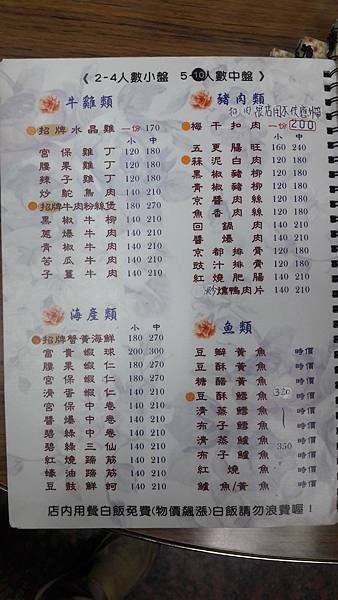 《 2-4人數小盤 5-10人數中盤 》
牛雞類
招牌水晶雞 一份 170
小 中
宮保雞丁 120 180
腰果雞丁 120 180
辣子雞丁 120 180
炒鴕鳥肉 140 210
招牌牛肉粉絲煲 180 270
黑椒牛柳 140 210
蔥爆牛肉 140 210
青椒牛肉 140 210
苦瓜牛肉 140 210
子薑牛肉 140 210
豬肉類
梅干扣肉 一份 200
小 中
五更腸旺 160 240
蒜泥白肉 120 180
黑椒豬柳 120 180
青椒豬柳 120 180
官保肉絲 120 180
魚香肉絲 120 180
回鍋肉 140 210
醬爆肉 140 210
京都排骨 120 180
豉汁排骨 120 180
紅燒肥腸 140 210
炒爐鴨肉片 140 210
海產類
小 中
招牌蟹黃海鮮 180 270
富貴蝦球 200 300
腰果蝦仁 180 270
清蛋蝦仁 180 270
宮保中卷 140 210
醬爆中卷 140 210
碧綠中卷 140 210
碧綠三仙 140 210
紅燒蹄筋 140 210
蠔油蹄筋 140 210
豆豉鮮蚵 140 210
魚類
豆瓣黃魚 時價
豆酥黃魚 時價
糖醋黃魚 時價
豆酥鱈魚 320
清蒸鱈魚
布子鱈魚
清蒸鱸魚 350
布子鱸魚
紅燒魚 時價
鱸魚/黃魚 時價
店內用餐白飯免費(物價飆漲)白飯請勿浪費喔！